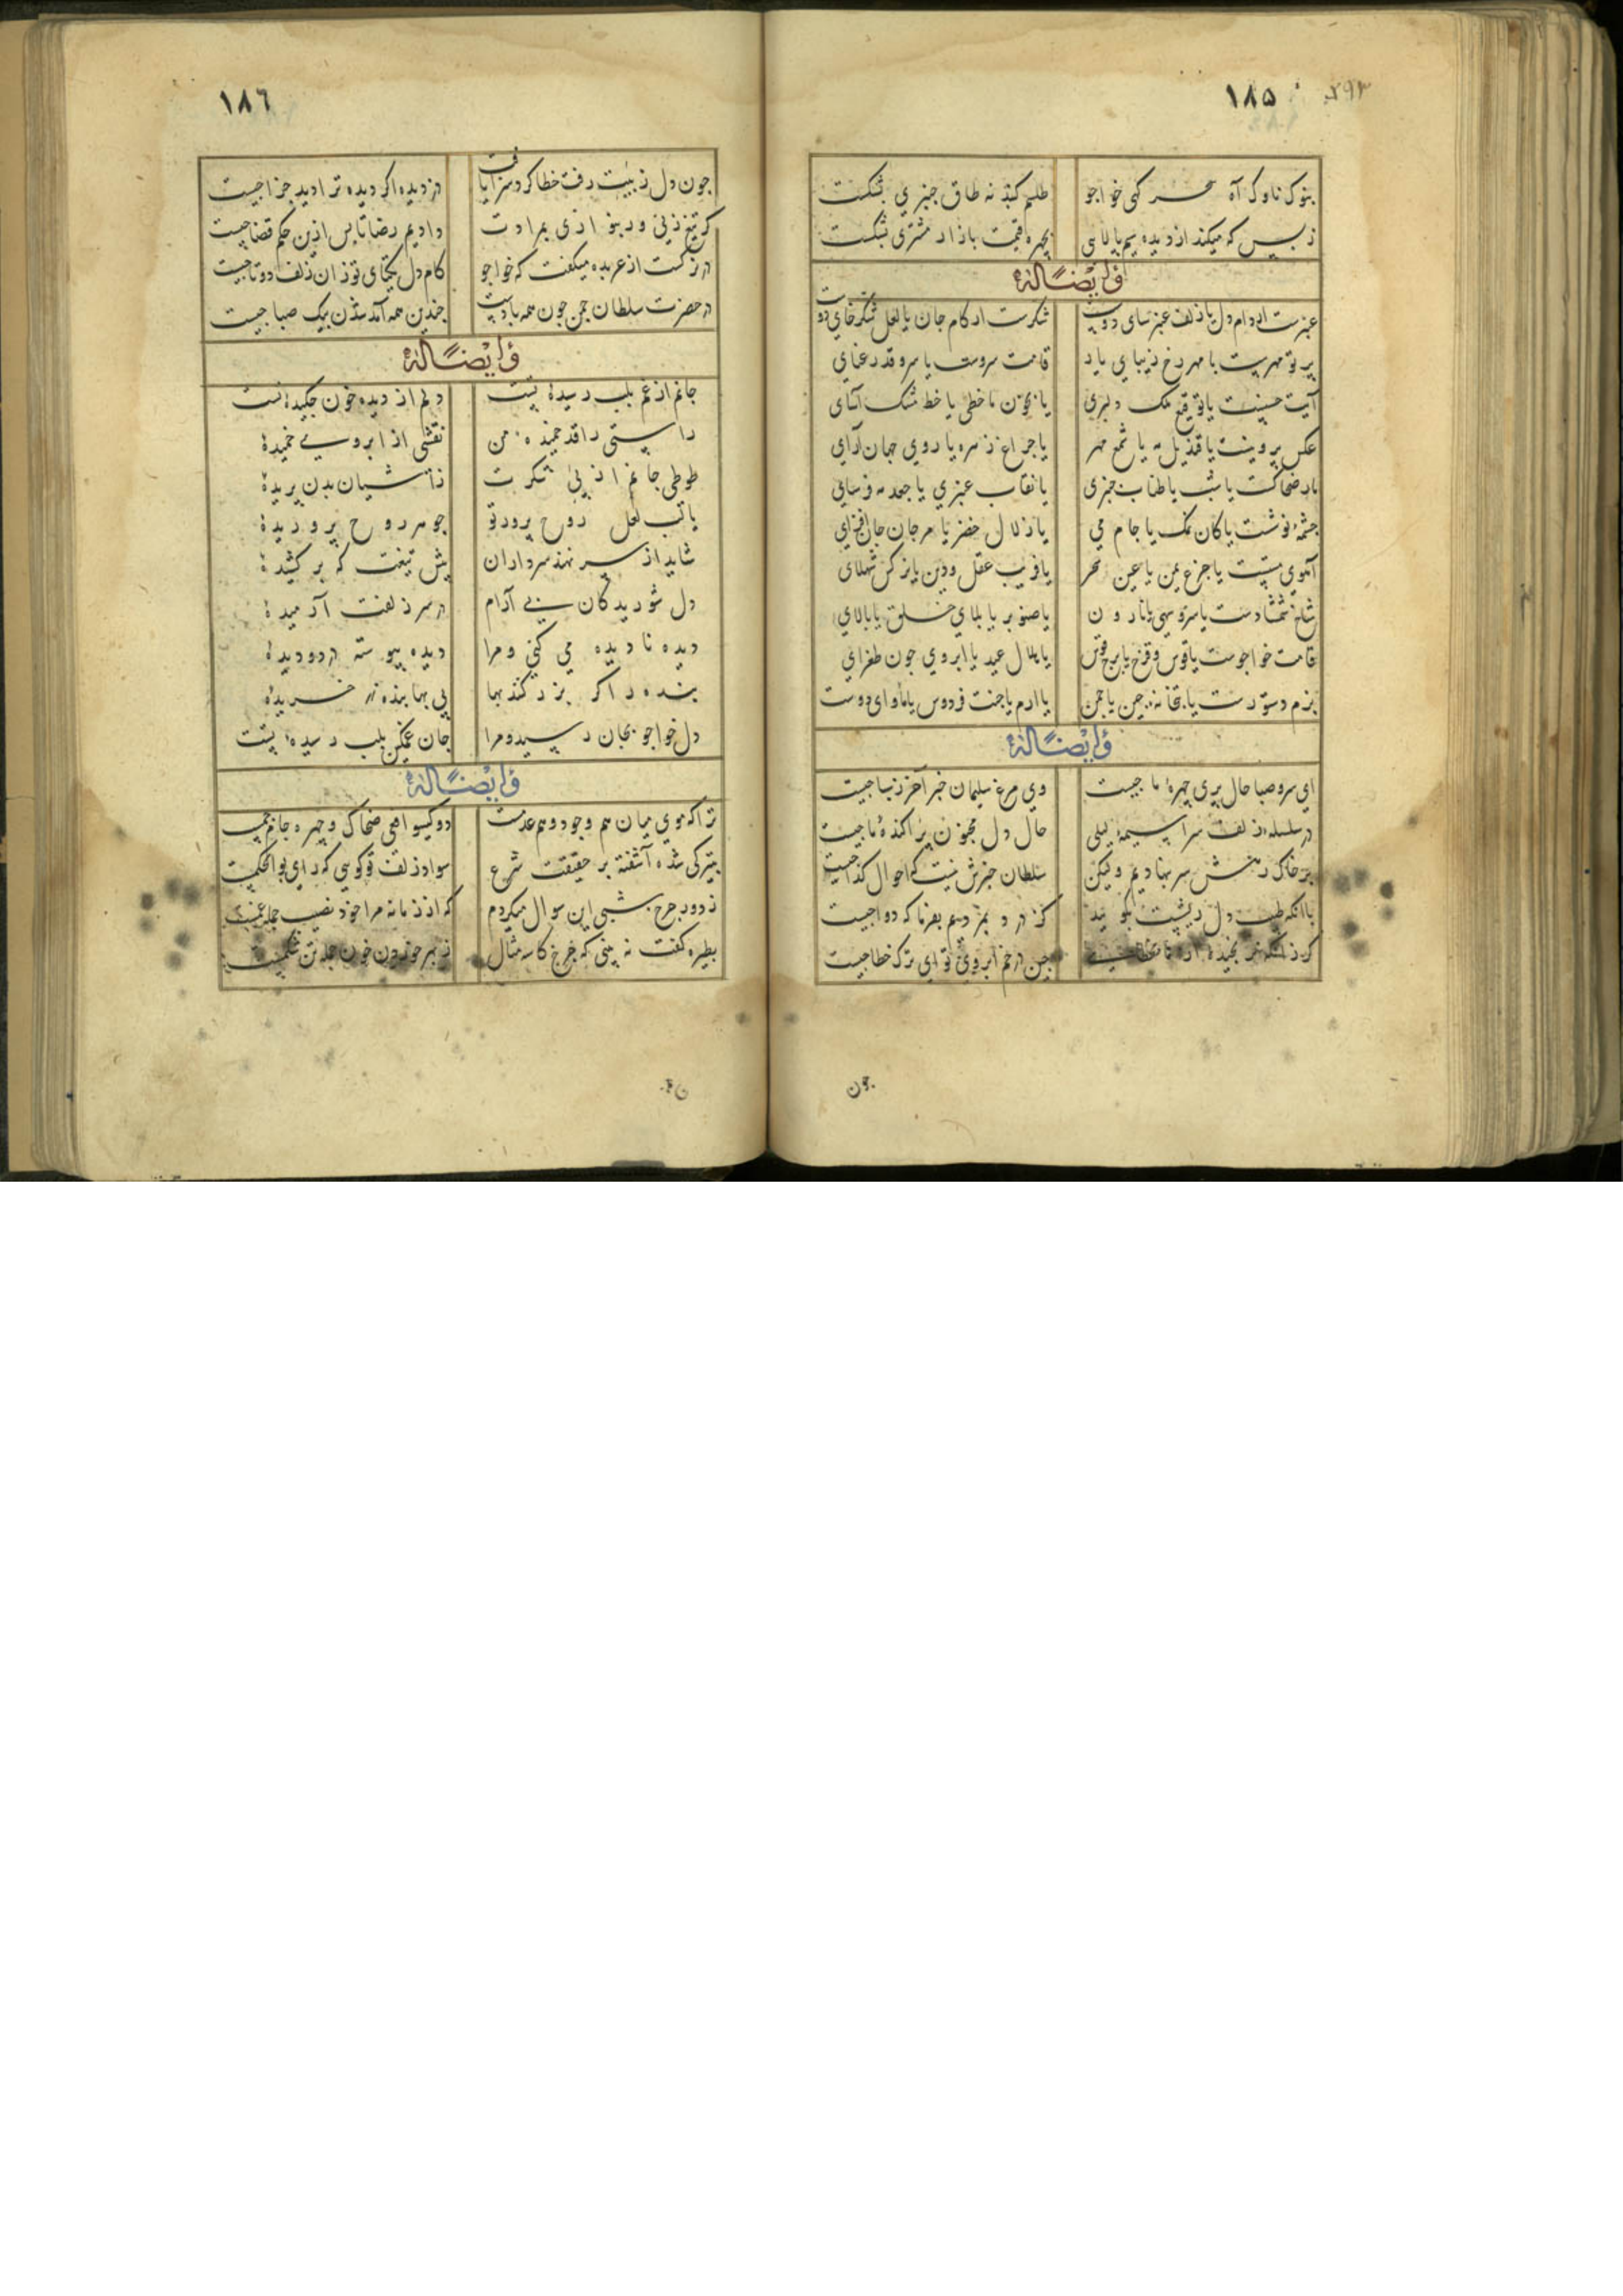 ۱۸۵
۲۹۳
بنوک ناوک آه سحر کهی خواجو طلسم کنبذ نه طاق جنبری بشکست
زبس که میکند از دیده سیم پالایی بچهره قیمت بازار مشتری بشکست
وَلَهُ اَیْضًا
عنبرست ان دام دل یا زلف عنبرسای دوست شکرست ان کام جان یا لعل شکرخای دوست
پرتو مهرست یا مهر رخ زیبای یار قامت سروست یا سرو قد رعنای
آیت حسنست یا توقیع ملک دلبری یا بخون ما خطی یا خط مشک آسای
عکس پروینست یا قندیل مه یا شمع مهر یا چراغ زهره یا روی جهان آرای
مار ضحاکست یا شب یا طناب جنبری یا نقاب عنبری یا جعد مه فرسای
جشمهٔ نوشست یا کان نمک یا جام می یا زلال خضر یا مرجان جان افزای
آهوی مستست یا جزع یمن یا عین سحر یا فریب عقل و دین یا نرکس شهلای
شاخ شمشادست یا سرو سهی یا نارون یا صنوبر یا بلای خلق یا بالای
قامت خواجوست یا قوس و قزح یا برج قوس یا هلال عید یا ابروی جون طغرای
بزم دستورست یا بتخانهٔ جین یا جمن یا ارم یا جنت فردوس یا مأوای دوست
وَلَهُ اَیْضًا
ای سرو صبا حال پری جهرهٔ ما جیست وی مرغ سلیمان خبر آخر ز سبا جیست
در سلسلهٔ زلف سراسیمهٔ لیلی حال دل مجنون پراکندهٔ ما جیست
بر خاک رهش سر بنهادیم ولیکن سلطان خبرش نیست که احوال کدا جیست
با انکه طبیب دل ریشست بکویید کز درد بمردیم بفرما که دوا جیست
جین در خم ابروی تو ای ترک خطا جیست
جون
۱۸٦
جون دل زبیت رفت خطا کرد سزا یافت در دیده اکر دیده ترا دید جزا جیست
کر تیغ زنی ور بنوازی بمرادت دادیم رضا تا پس ازین حکم قضا جیست
در نرکست از عربده میکفت که خواجو کام دل یکتای تو زان زلف دوتا جیست
در حضرت سلطان جمن جون همه بادست جندین همه آمد شدن پیک صبا جیست
وَلَهُ اَیْضًا
جانم از غم بلب رسیدهٔ تست دلم از دیده خون جکیدهٔ تست
راستی را قد خمیدهٔ من نقشی از ابروی خمیدهٔ
طوطی جانم از پی شکرت زآشیان بدن پریدهٔ
یا تب لعل روح پرور تو جوهر روح پروریدهٔ
شاید از سر نهند سرداران پیش تیغت که بر کشیدهٔ
دل شوریدکان بی آرام در سر زلفت آرمیدهٔ
دیده نادیده می کنی و مرا دیده پیوسته در دو دیدهٔ
بنده را کر بزر کنند بها بی بها بندهٔ زر خریدهٔ
دل خواجو بجان رسید و مرا جان غمکین بلب رسیدهٔ تست
وَلَهُ اَیْضًا
ترا که موی میان هم وجود و هم عدمست دو کیسو افعی ضحاک و جهره جام جمست
بتیرکی شده آشفته بر حقیقت شرع سواد زلف تو کویی که رای بو الحکمست
ز دور جرخ شبی این سوال میکردم که از زمانه مرا خود نصیب جمله غمست
بطیره کفت نه بینی که جرخ کاسه مثال ز بهر خوردن خون جمله تن شکمست